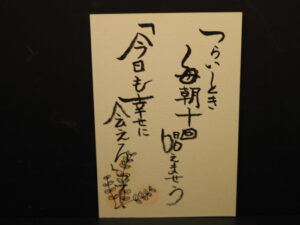 つらいとき
毎朝十回
唱えませう
「今日も幸せに
会える」